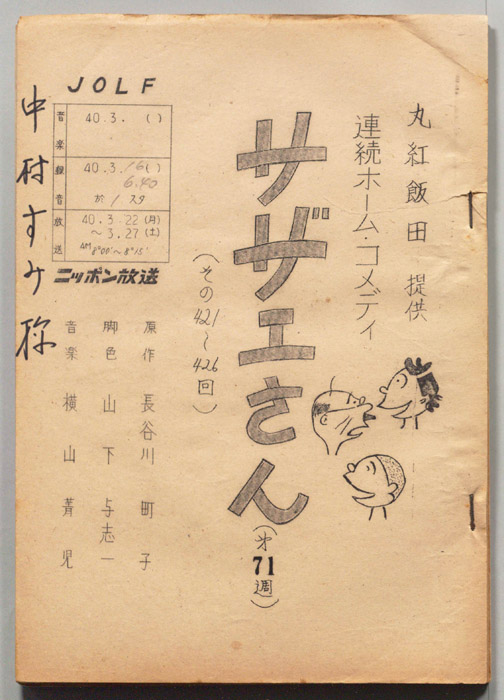 丸紅飯田 提供
連続ホーム・コメディ
サザエさん
(第71週)
(その421~426回)
JOLF
音楽 40.3. ( )
録音 40.3.16( )
6.40
於 1スタ
放送 40.3.22(月)
~3.27(土)
AM 8°00'~8°15'
ニッポン放送
原作 長谷川 町子
脚色 山下 与志一
音楽 横山 菁児
中村すみ称